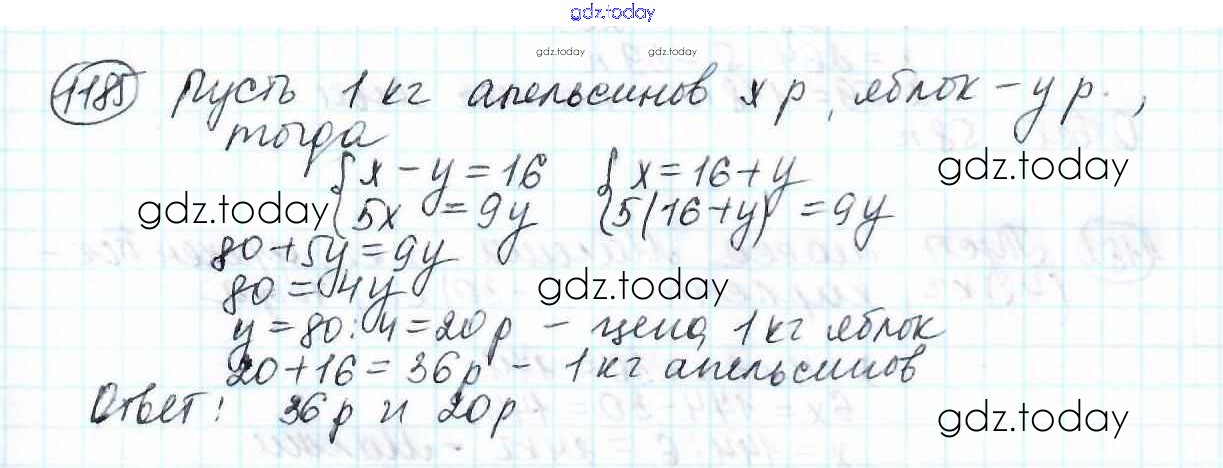 gdz.today
gdz.today gdz.today
1185 Пусть 1 кг апельсинов x р, яблок – y р.,
тогда
{ x – y = 16 { x = 16 + y
gdz.today
gdz.today { 5x = 9y { 5(16+y) = 9y
80 + 5y = 9y
80 = 4y gdz.today
y = 80 : 4 = 20 р – цена 1 кг яблок
20 + 16 = 36 р – 1 кг апельсинов
Ответ: 36 р и 20 р
gdz.today